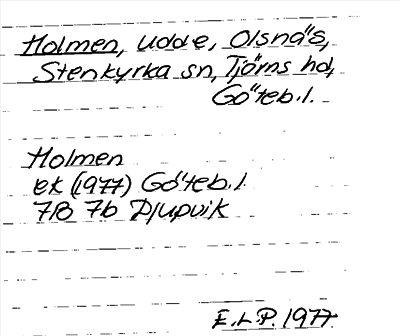 Holmen, udde, Olsnäs,
Stenkyrka sn, Tjörns hd,
Göteb. l.
Holmen
ek (1977) Göteb. l.
7B 7b Djupvik
E.L.P. 1977